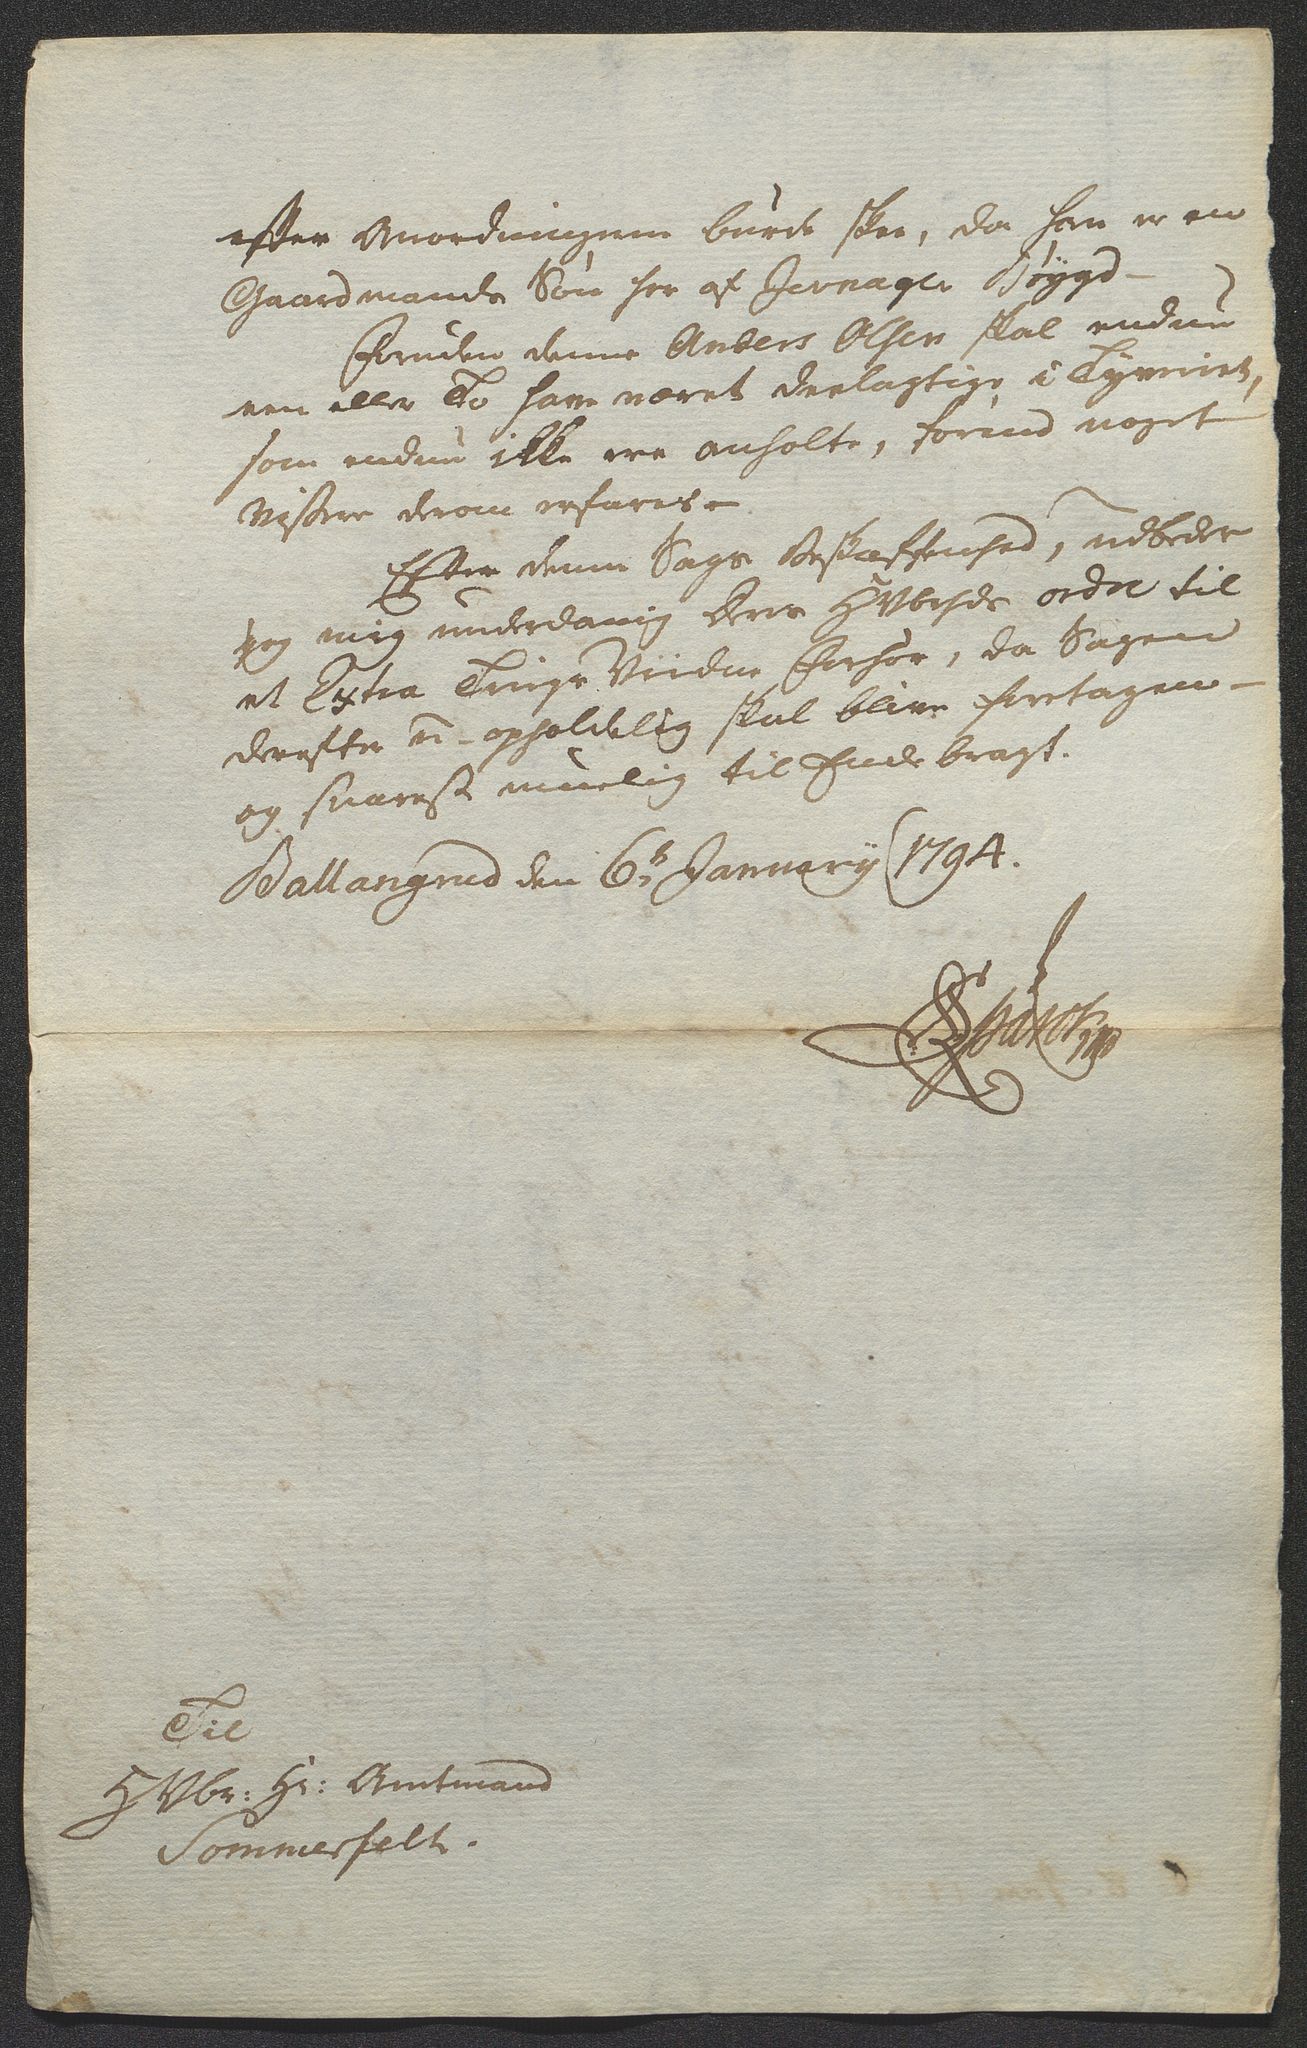 efter Anordningerne burde skee, da han er en
Gaardmands Søn her af Jevnager Bøygd -
Foruden denne Anders Olsen skal endnu
een eller To have været deelagtige i Tyveriet,
som endnu ikke ere anholte, forend noget
vissere derom erfares -
Efter denne Sags Beskaffenhed, udbeder
jeg mig underdanig Deres HVbhds ordre til
et Extra Tings Vidne Forhør, da Sagen
derefter u-opholdelig skal blive foretagen -
og snarest muelig til Ende bragt.
Ballangrud den 6te January 1794.
Til
HVbr: Hr: Amtmand
Sommerfelt.